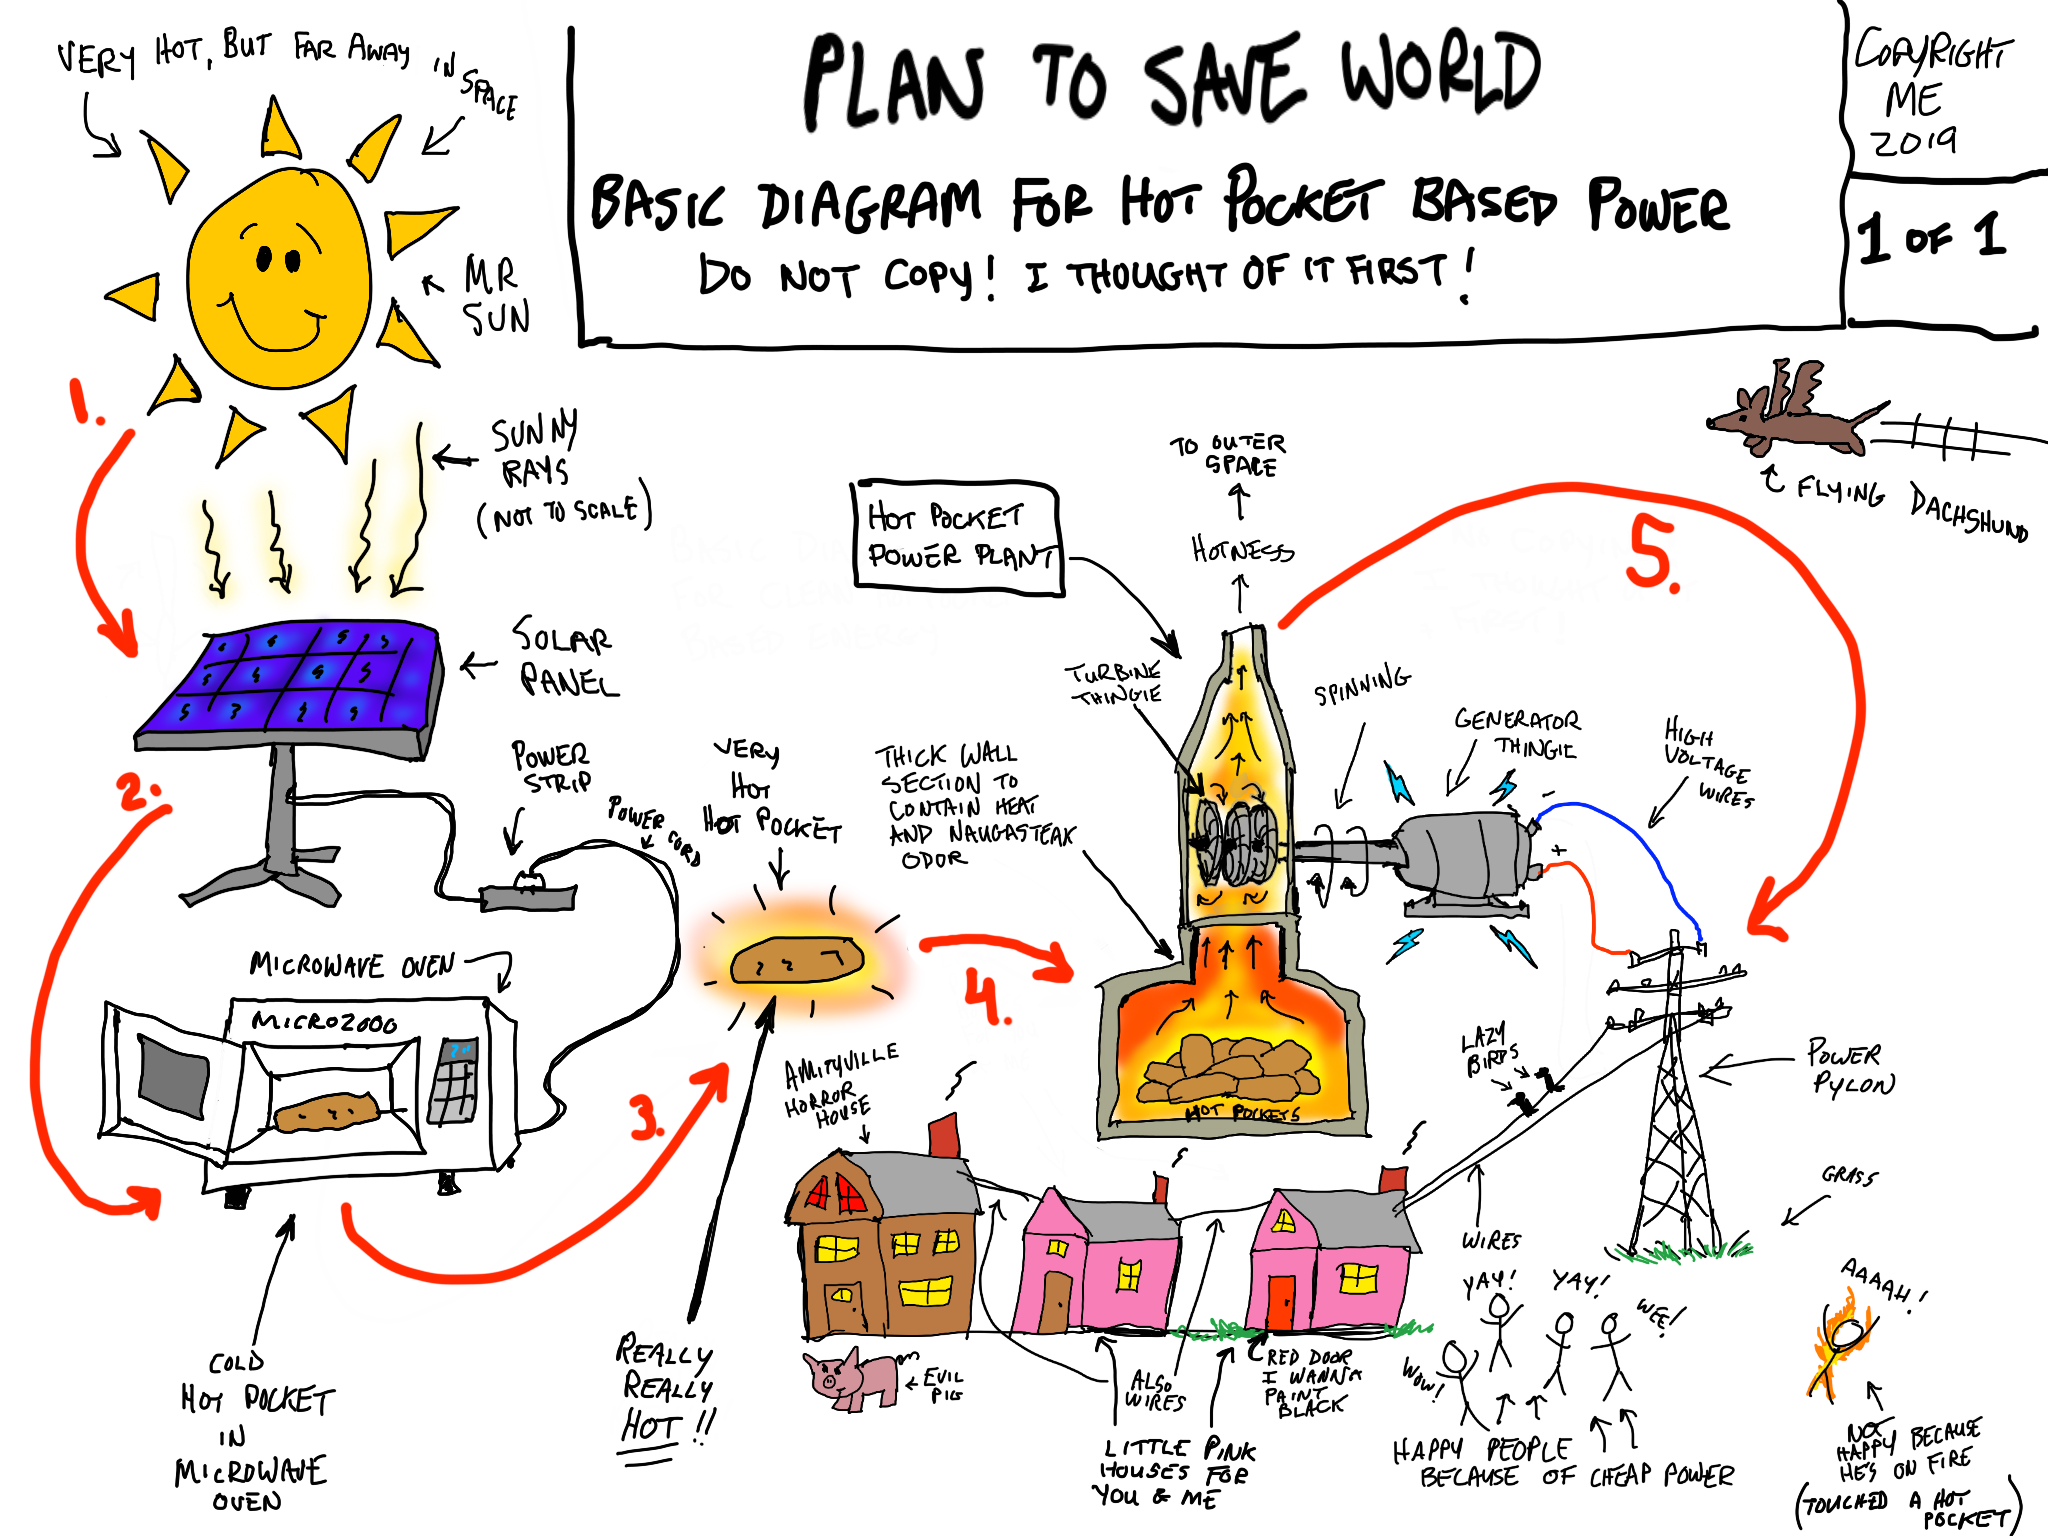 VERY HOT, BUT FAR AWAY IN SPACE
PLAN TO SAVE WORLD
BASIC DIAGRAM FOR HOT POCKET BASED POWER
DO NOT COPY! I THOUGHT OF IT FIRST!
COPYRIGHT
ME
2019
1 OF 1
MR
SUN
1.
SUNNY
RAYS
(NOT TO SCALE)
FLYING DACHSHUND
TO OUTER
SPACE
HOTNESS
HOT POCKET
POWER PLANT
5.
SOLAR
PANEL
TURBINE
THINGIE
SPINNING
GENERATOR
THINGIE
HIGH
VOLTAGE
WIRES
- 
+
2.
POWER
STRIP
POWER CORD
VERY
HOT
HOT POCKET
THICK WALL
SECTION TO
CONTAIN HEAT
AND NAUGASTEAK
ODOR
MICROWAVE OVEN
MICRO2000
4.
3.
HOT POCKETS
AMITYVILLE
HORROR
HOUSE
LAZY
BIRDS
POWER
PYLON
GRASS
WIRES
COLD
HOT POCKET
IN
MICROWAVE
OVEN
REALLY
REALLY
HOT!!
EVIL
PIG
ALSO
WIRES
RED DOOR
I WANNA
PAINT
BLACK
LITTLE PINK
HOUSES FOR
YOU & ME
WOW!
YAY!
YAY!
WEE!
HAPPY PEOPLE
BECAUSE OF CHEAP POWER
AAAAH!
NOT
HAPPY BECAUSE
HE'S ON FIRE
(TOUCHED A HOT
POCKET)